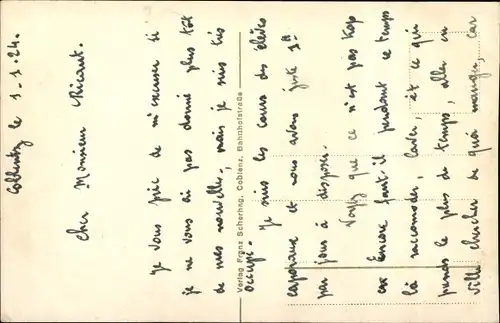 Coblentz le 1-1-24.
Cher Monsieur Ricaut.
Je vous prie de m'excuser si
je ne vous ai pas donné plus tôt
de mes nouvelles, mais je suis très
occupé.
Je suis les cours des élèves
caporaux et nous avons juste 1h
par jour à disposer.
Voyez que ce n'est pas trop
car Encore faut-il pendant ce temps
là raccomoder, laver, et ce qui
prends le plus de temps, aller en
ville chercher de quoi manger, car
Verlag Franz Scherhag, Coblenz, Bahnhofstraße